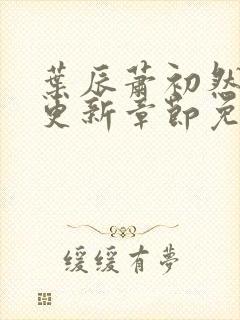 葉辰蕭初然
更新章節免
缓缓有夢